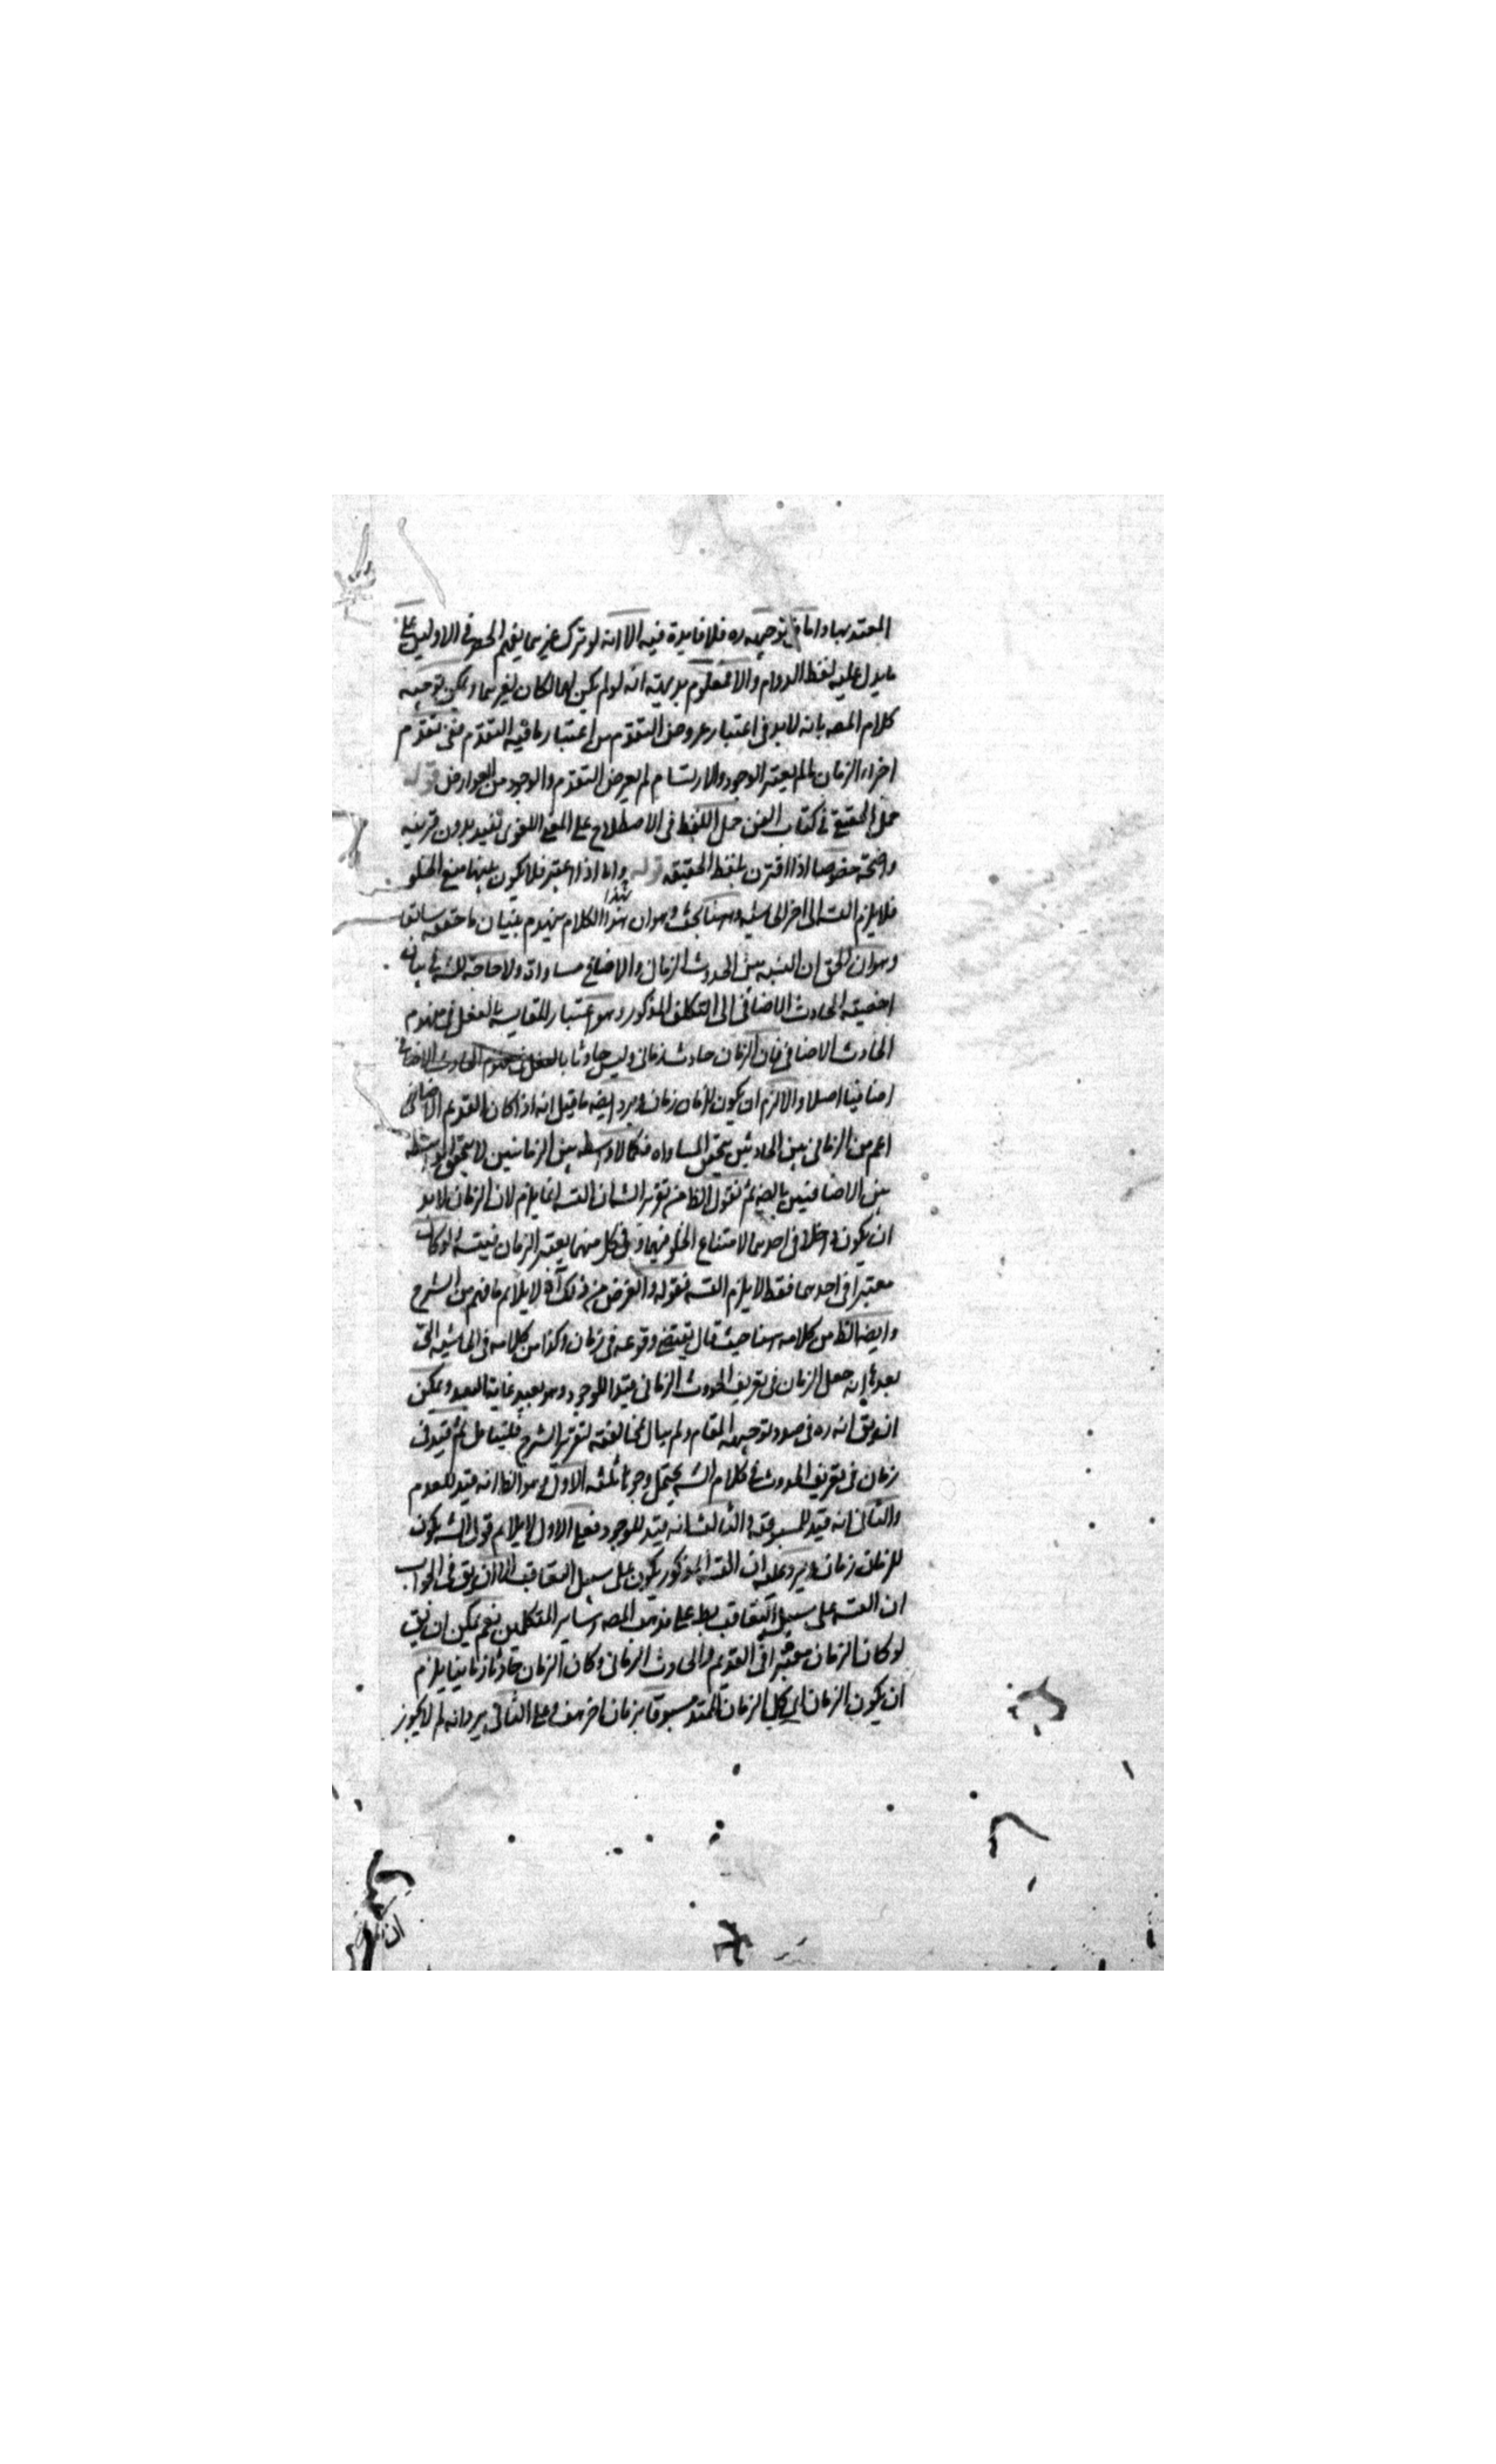 المعتد بها واما في توجيهه ره فلا فايدة فيه الا انه لو ترك غيرهما يفهم الحصر في الاولين على
ما يدل عليه لفظ الدوام والا فمعلوم بديهته انه لو لم يكن لهما لكان لغيرهما ويمكن توجيه
كلام المصه بانه لا بد في اعتبار عروض التقدم من اعتبار ما فيه التقدم ففي تقدم
اجزاء الزمان ما لم يعتبر الوجود والارتسام لم يعرض التقدم والوجود من العوارض قوله
حمل الحقيقي في كتاب الفن حمل اللفظ في الاصطلاح على المعنى اللغوى بعيد بدون قرينه
واضحة خصوصا اذا اقترن بلفظ الحقيقه قوله واما اذا اعتبر فلا يكون بينهما منع الخلو
فلا يلزم التسه الى اخر الحاشيه وههنا بحث وهو ان هذا الكلام يهدم بنيان ما حققه سابقا
وهو ان الحق ان النسبه بين الحدوث الزماني والاضافي مساواة ولا حاجة للشه في بيان
اخصية الحادث الاضافي الى التكلف المذكور وهو اعتبار المقايسه بالفعل في مفهوم
الحادث الاضافي فان الزمان حادث زماني وليس حادثا بالفعل في مفهوم الحادث الاضافي
اضافيا اصلا والا لزم ان يكون للزمان زمان ويرد ايضه ما قيل انه اذا كان القديم الاضافي
اعم من الزماني بين الحادثين يتحقق المساواه فكما لا واسطه بين الزمانيين لا يتحقق الواسطه
بين الاضافيين بالضه ثم نقول الظا من تقرير الشه ان التسه انما يلزم لان الزمان لا بد
ان يكون داخلا في احدهما لامتناع الخلو عنهما وفي كل منهما يعتبر الزمان فيتسه ولو كان
معتبرا في احدهما فقط لا يلزم التسه فقوله والغرض من ذلك آه لا يلايم ما فهم من الشرح
وايضه الظا من كلامه ههنا حيث قال يقتضي وقوعه في زمان وكذا من كلامه في الحاشيه التي
بعدها انه جعل الزمان في تعريف الحدوث الزماني قيدا للوجود وهو بعيد غاية البعد ويمكن
ان يق انه ره في صدد توجيه المقام ولم يبال بمخالفته لتقرير الشرح فليتامل ثم قيد في
زمان في تعريف الحدوث في كلام الشه يحتمل وجوها ثلثه الاول وهو الظا انه قيد للعدم
والثاني انه قيد للمسبوقيه والثالث انه قيد للوجود فعلى الاول لا يلايم قول الشه يكون
للزمان زمان ويرد عليه ان التسه المذكور يكون على سبيل التعاقب الا ان يق في الجواب
ان التسه على سبيل التعاقب بط على مذهب المصه وساير المتكلمين نعم يمكن ان يق
لو كان الزمان معتبرا في القديم والحادث الزماني وكان الزمان حادثا زمانيا يلزم
ان يكون الزمان اي كل الزمان الممتد مسبوقا بزمان اخر هف وعلى الثاني يرد انه لم لا يجوز